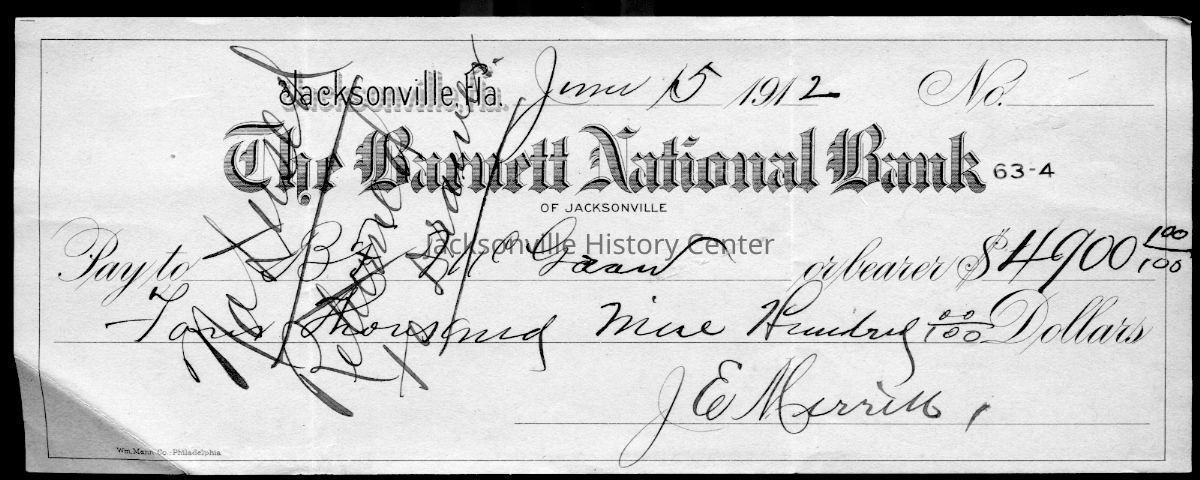 Jacksonville, Fla. June 15 1912 No.
The Barnett National Bank 63-4
OF JACKSONVILLE
Jacksonville History Center
Pay to B. Mc or bearer $4900 100/100
Four Thousand Nine Hundred 00/100 Dollars
J E Merrill
Wm. Mann Co. Philadelphia